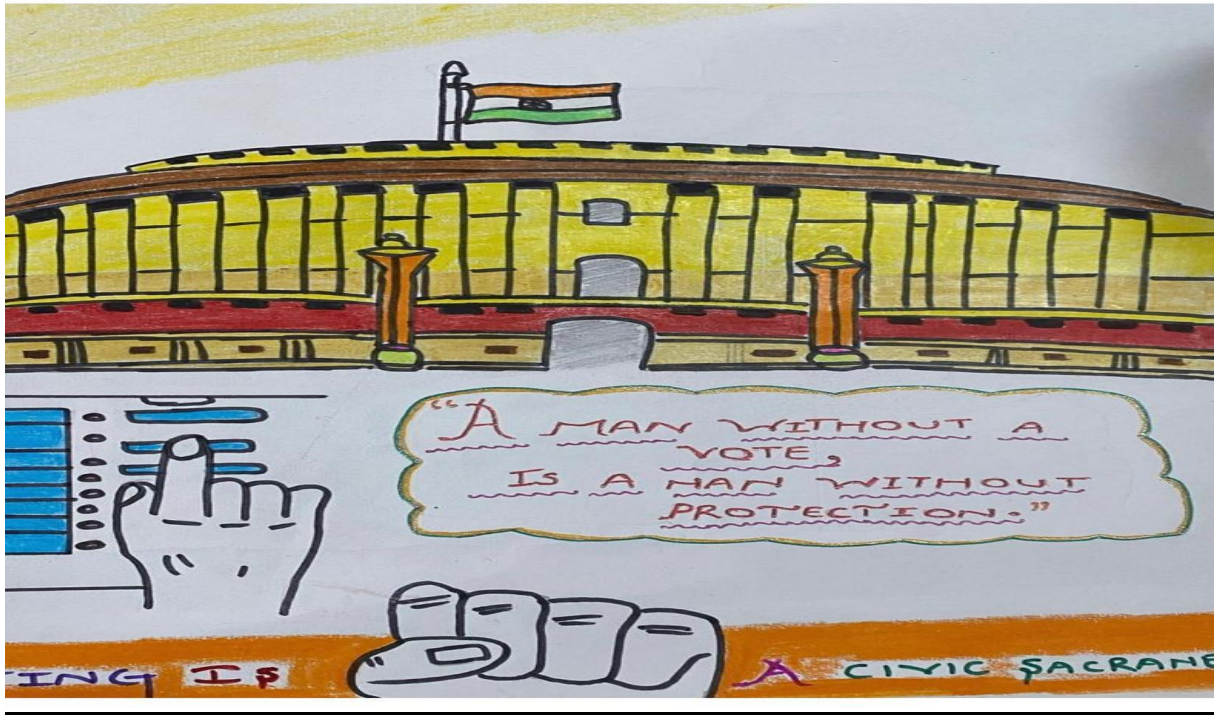 "A MAN WITHOUT A
VOTE,
IS A MAN WITHOUT
PROTECTION."
TING IS A CIVIC SACRANE